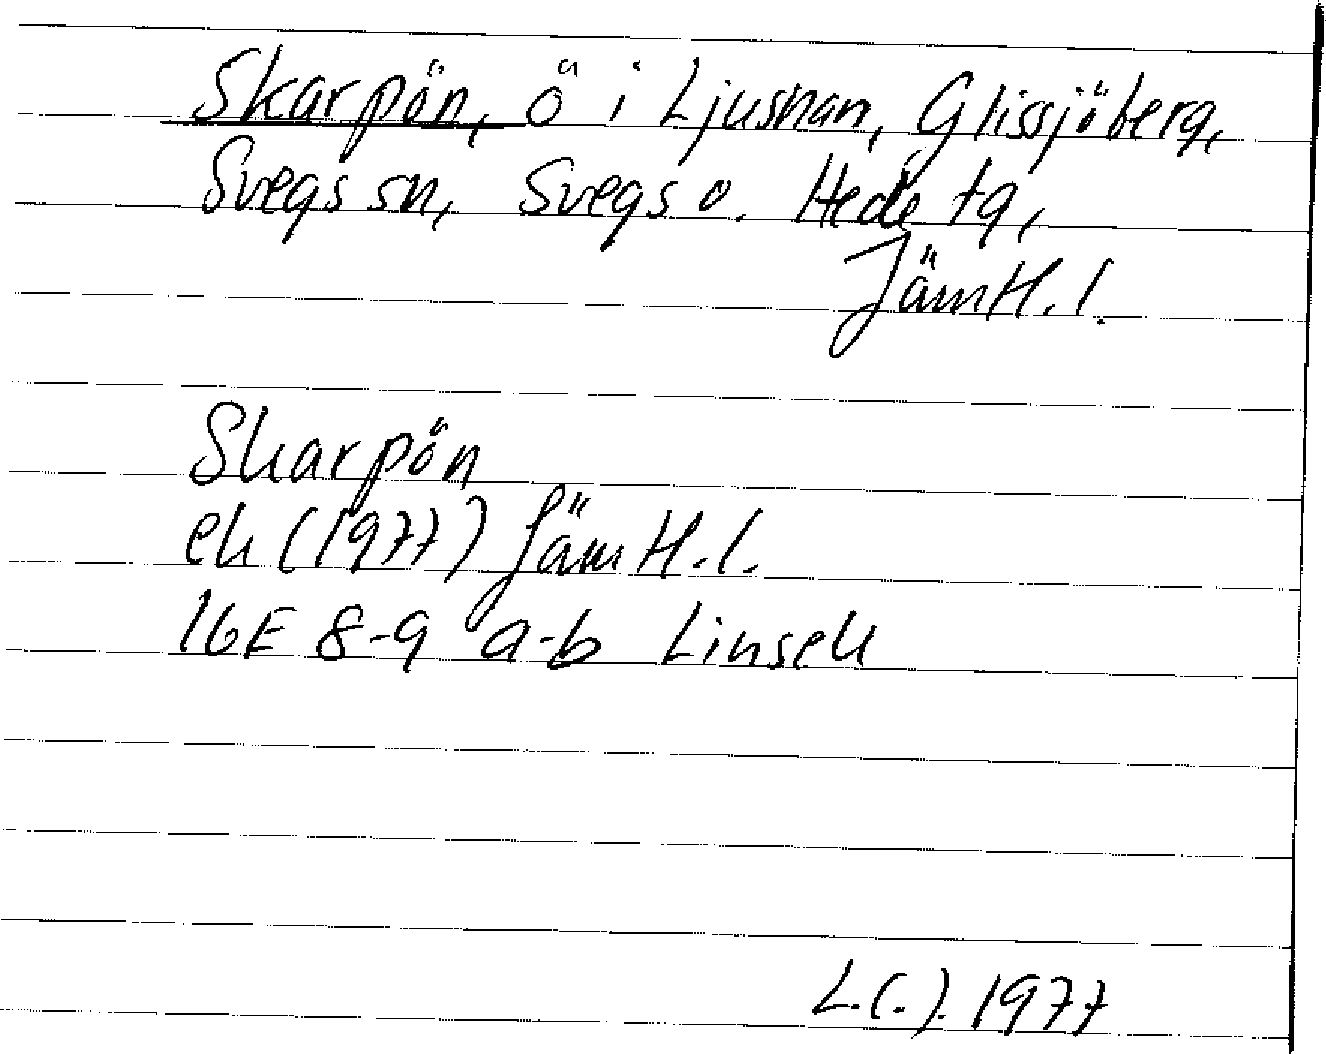 Skarpön, ö i Ljusnan, Glissjöberg,
Svegs sn, Svegs o. Hede tg,
JämH.l.
Skarpön
ek (1977) JämH.l.
16E 8-9 a-b Linsell
L.(.). 1977